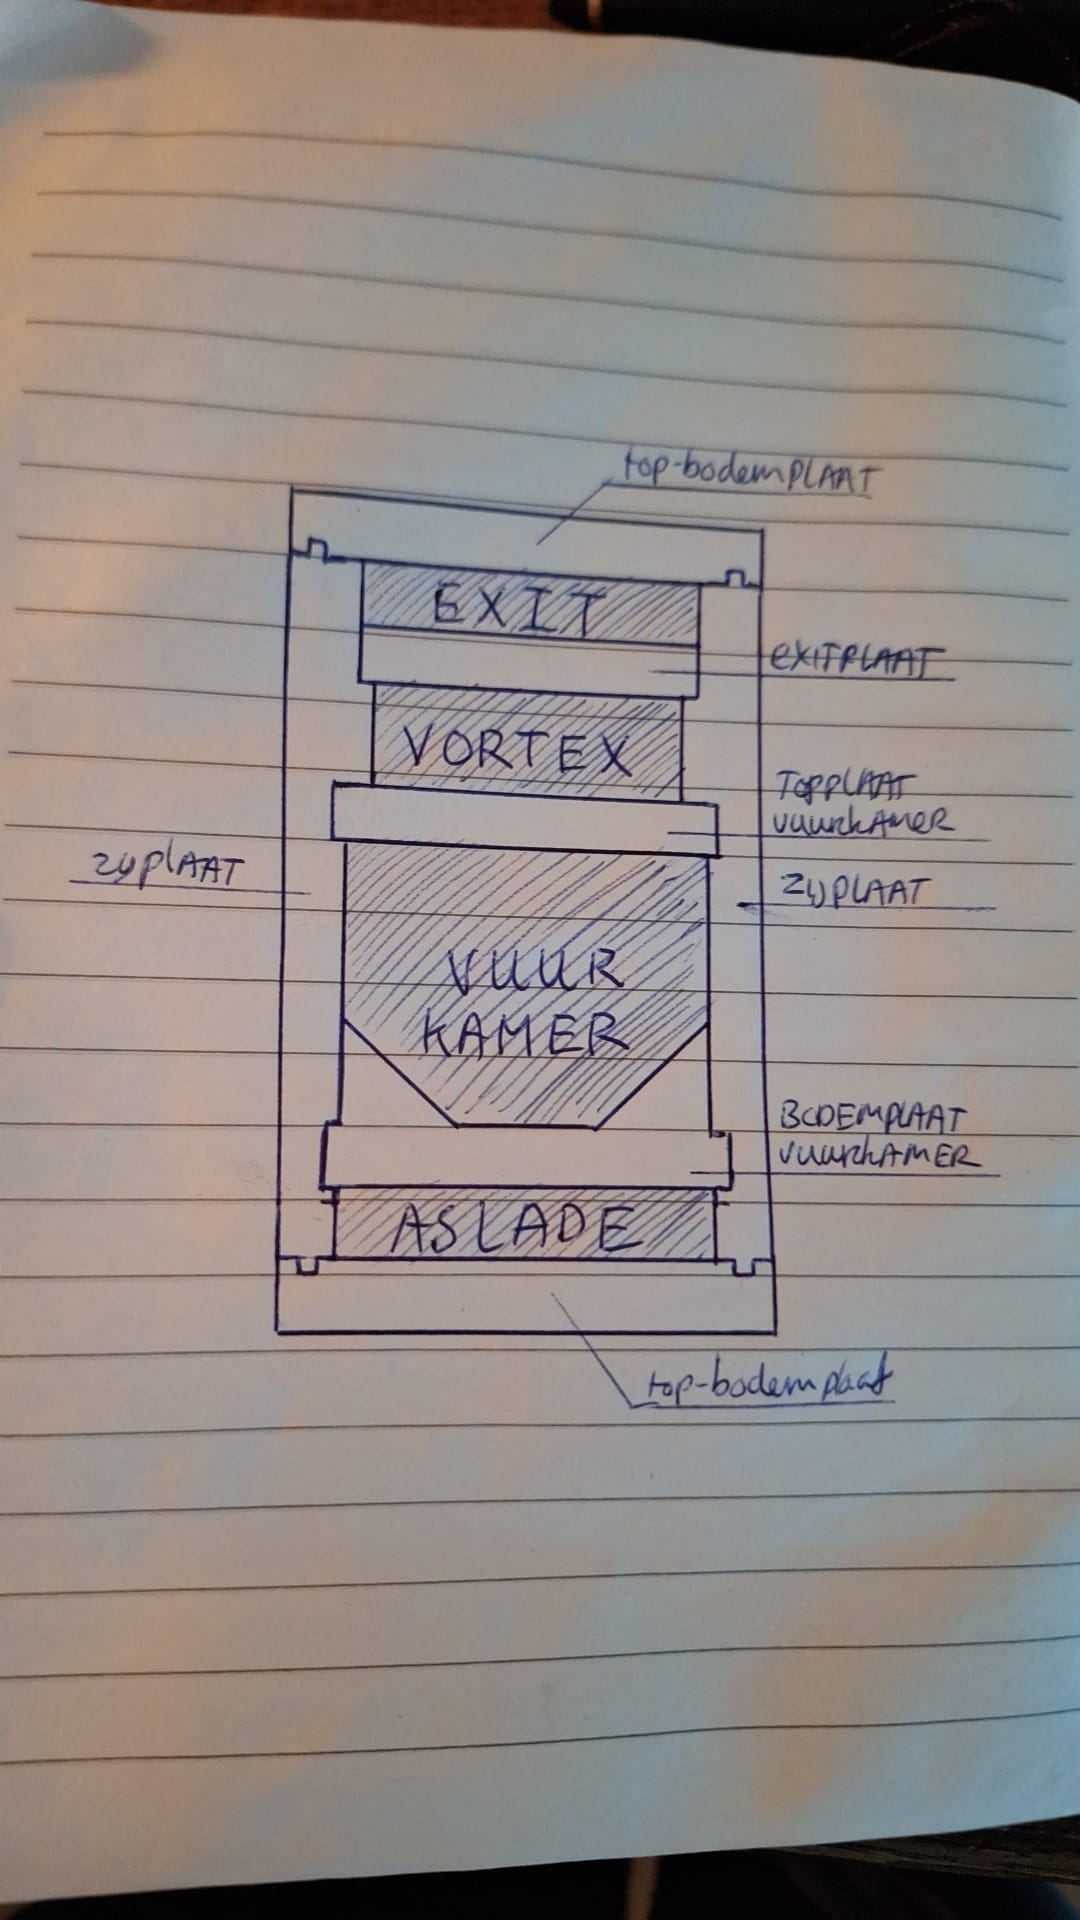 top-bodemPLAAT
EXIT
EXITPLAAT
VORTEX
TOPPLAAT
vuurkAMER
zyplAAT
ZijPLAAT
VUUR
KAMER
BODEMPLAAT
vuurkAMER
ASLADE
top-bodemplaat